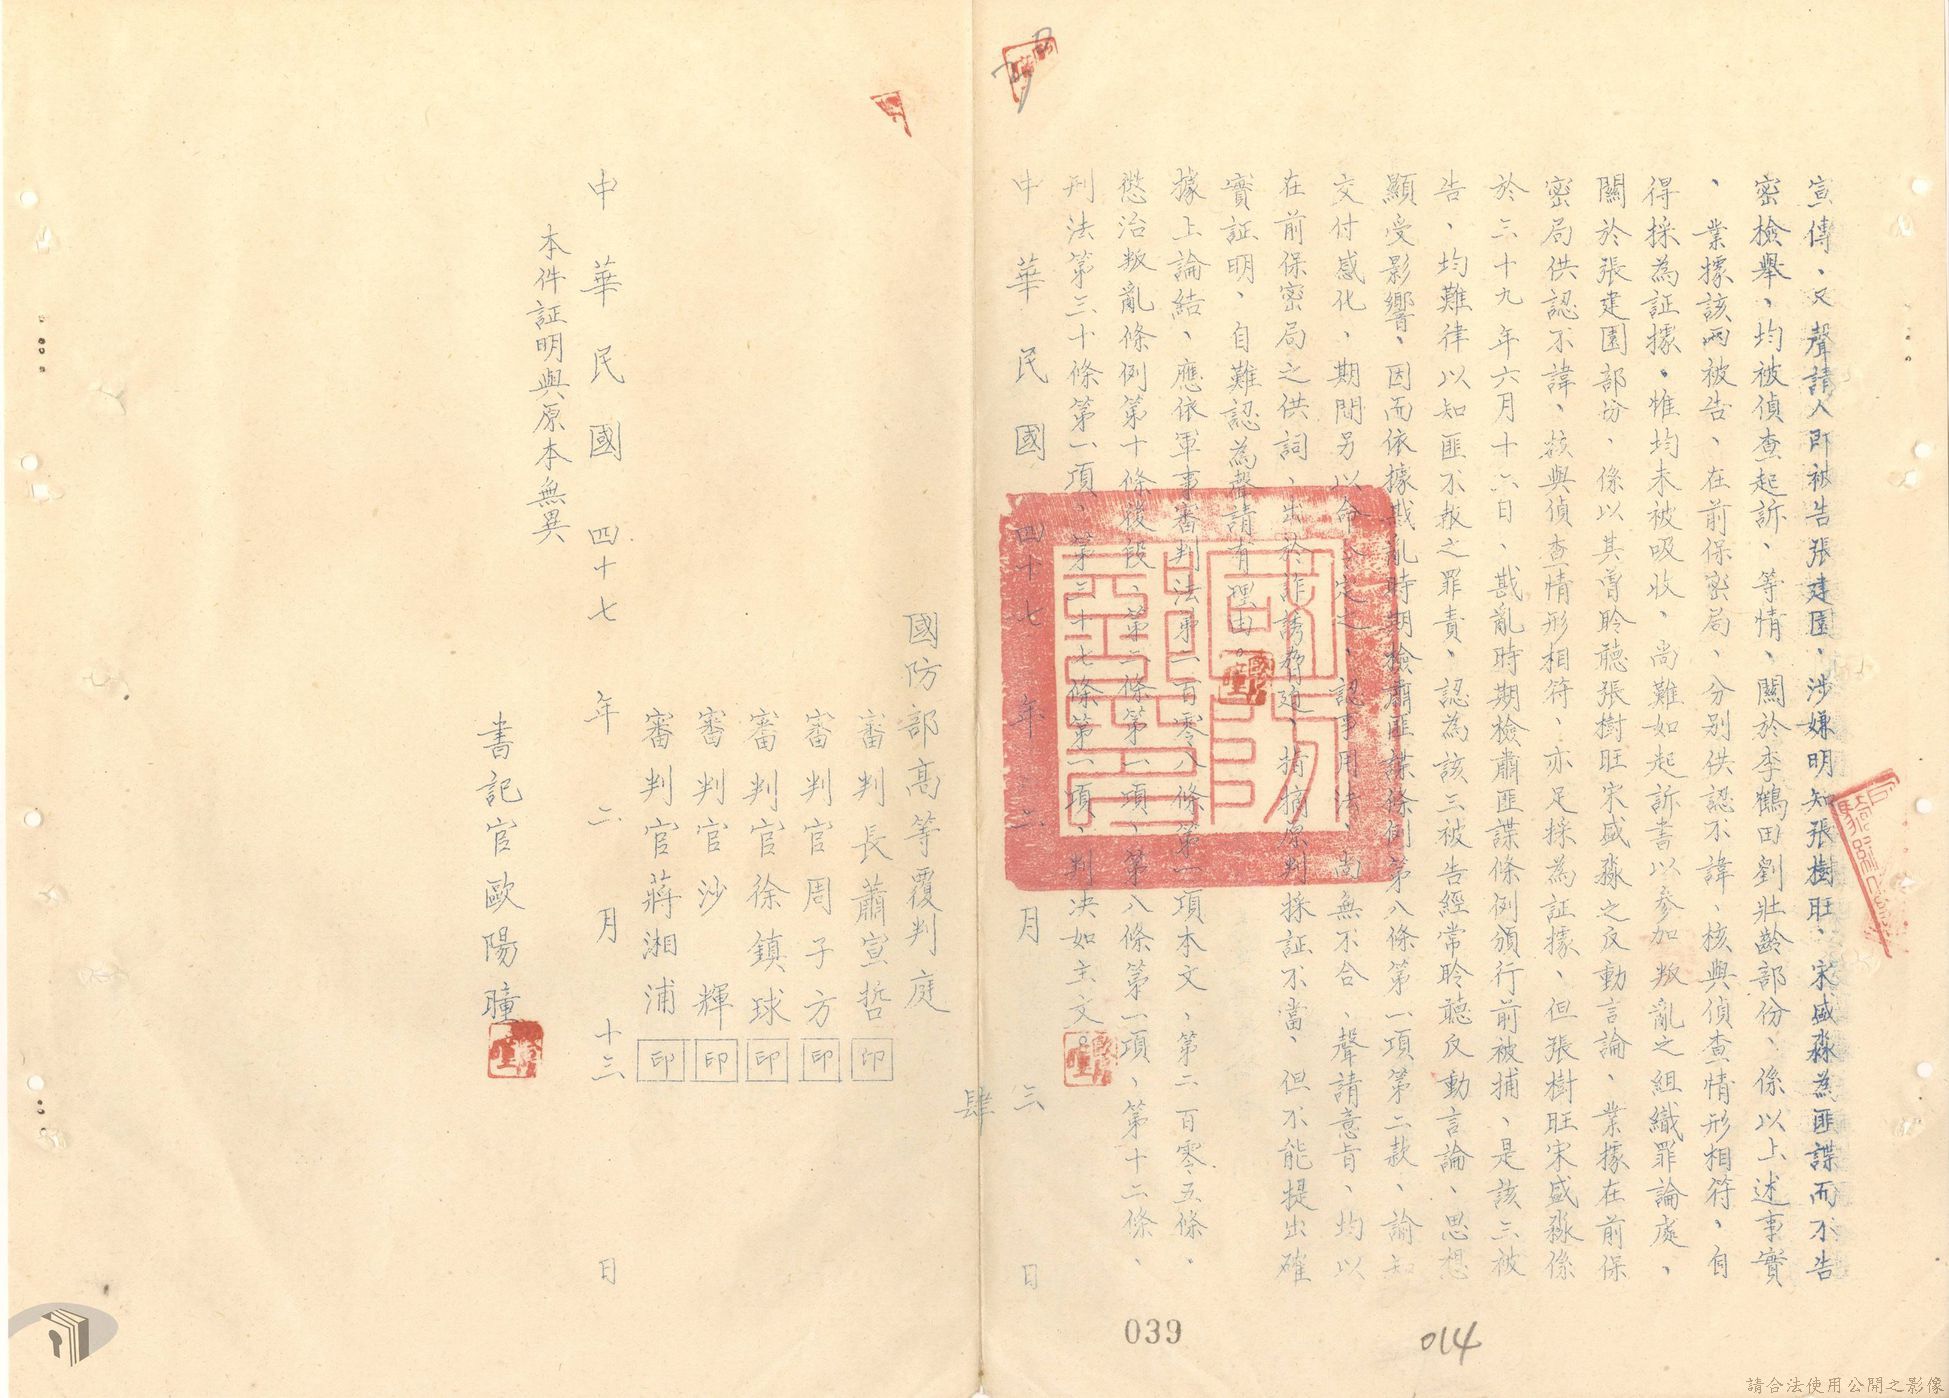 宣傳、又聲請人即被告張建園、涉嫌明知張樹旺、宋盛淼為匪諜而不告
密檢舉、均被偵查起訴、等情、關於李鶴田劉壯齡部份、係以上述事實
、業據該兩被告、在前保密局、分別供認不諱、核與偵查情形相符、自
得採為証據、惟均未被吸收、尚難如起訴書以參加叛亂之組織罪論處、
關於張建園部份、係以其曾聆聽張樹旺宋盛淼之反動言論、業據在前保
密局供認不諱、核與偵查情形相符、亦足採為証據、但張樹旺宋盛淼係
於三十九年六月十六日、戡亂時期檢肅匪諜條例頒行前被捕、是該三被
告、均難律以知匪不報之罪責、認為該三被告經常聆聽反動言論、思想
顯受影響、因而依據戡亂時期檢肅匪諜條例第八條第一項第二款、諭知
交付感化、期間另以命令定之、認事用法、尚無不合、聲請意旨、均以
在前保密局之供詞、出於詐誘脅迫、指摘原判採証不當、但不能提出確
實証明、自難認為聲請有理由。
據上論結、應依軍事審判法第二百零八條第一項本文、第二百零五條、
懲治叛亂條例第十條後段、第二條第一項、第八條第一項、第十二條、
刑法第三十條第一項、第三十七條第一項、判決如主文。
中華民國四十七年十二月三日
肆
國防部高等覆判庭
審判長蕭宣哲 印
審判官周子方 印
審判官徐鎮球 印
審判官沙輝 印
審判官蔣湘浦 印
中華民國四十七年二月十三日
本件証明與原本無異
書記官歐陽瞳
039
014
請合法使用公開之影像